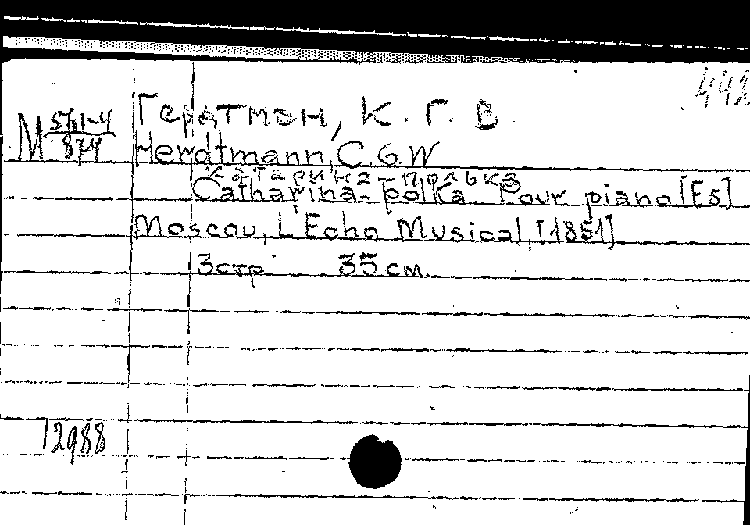 442
М 571-4/874
Гердтман, К. Г. В.
Herdtmann, C.G.W
Катарина-полька
Catharina-polka. Pour piano [Es]
Moscou, L'Echo Musical, [1851]
3стр 35 см.
12988